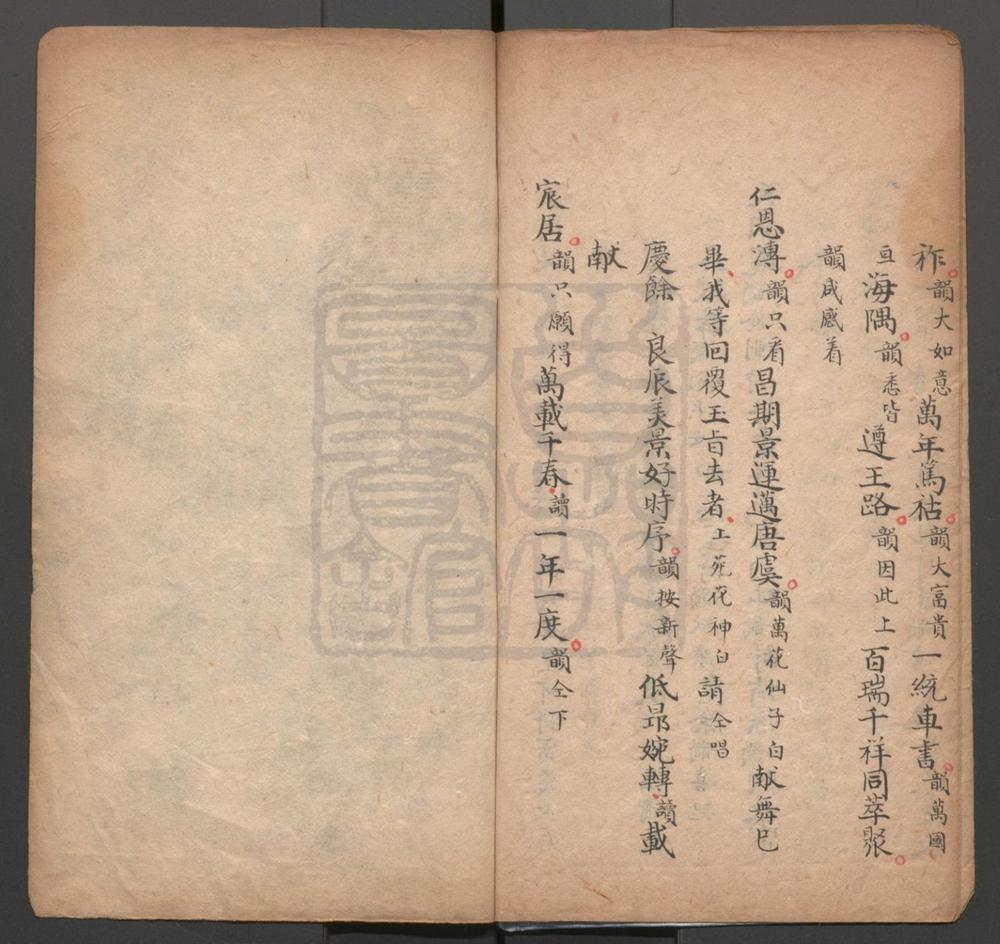 祚韻大如意萬年篤祜韻大富貴一統車書韻萬國
亘海隅韻悉皆遵王路韻因此上百瑞千祥同萃聚
韻咸感着
仁恩溥韻只看昌期景運邁唐虞韻萬花仙子白献舞已
畢我等回覆玉旨去者上苑花神白請仝唱
慶餘 良辰美景好時序韻按新聲低昻婉轉讀載
献
宸居韻只願得萬載千春讀一年一度韻仝下